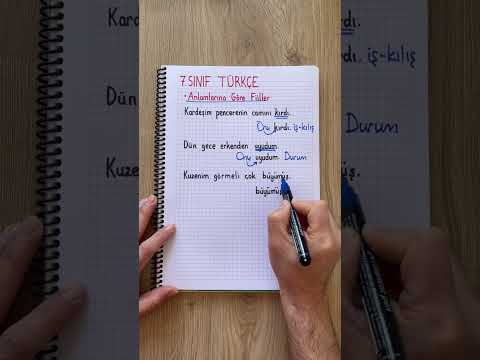 7.SINIF TÜRKÇE
• Anlamlarına Göre Fiiller
Kardeşim pencerenin camını kırdı.
Onu kırdı. iş-kılış
Dün gece erkenden uyudum.
Onu uyudum Durum
Kuzenim görmeli çok büyümüş.
büyümüş